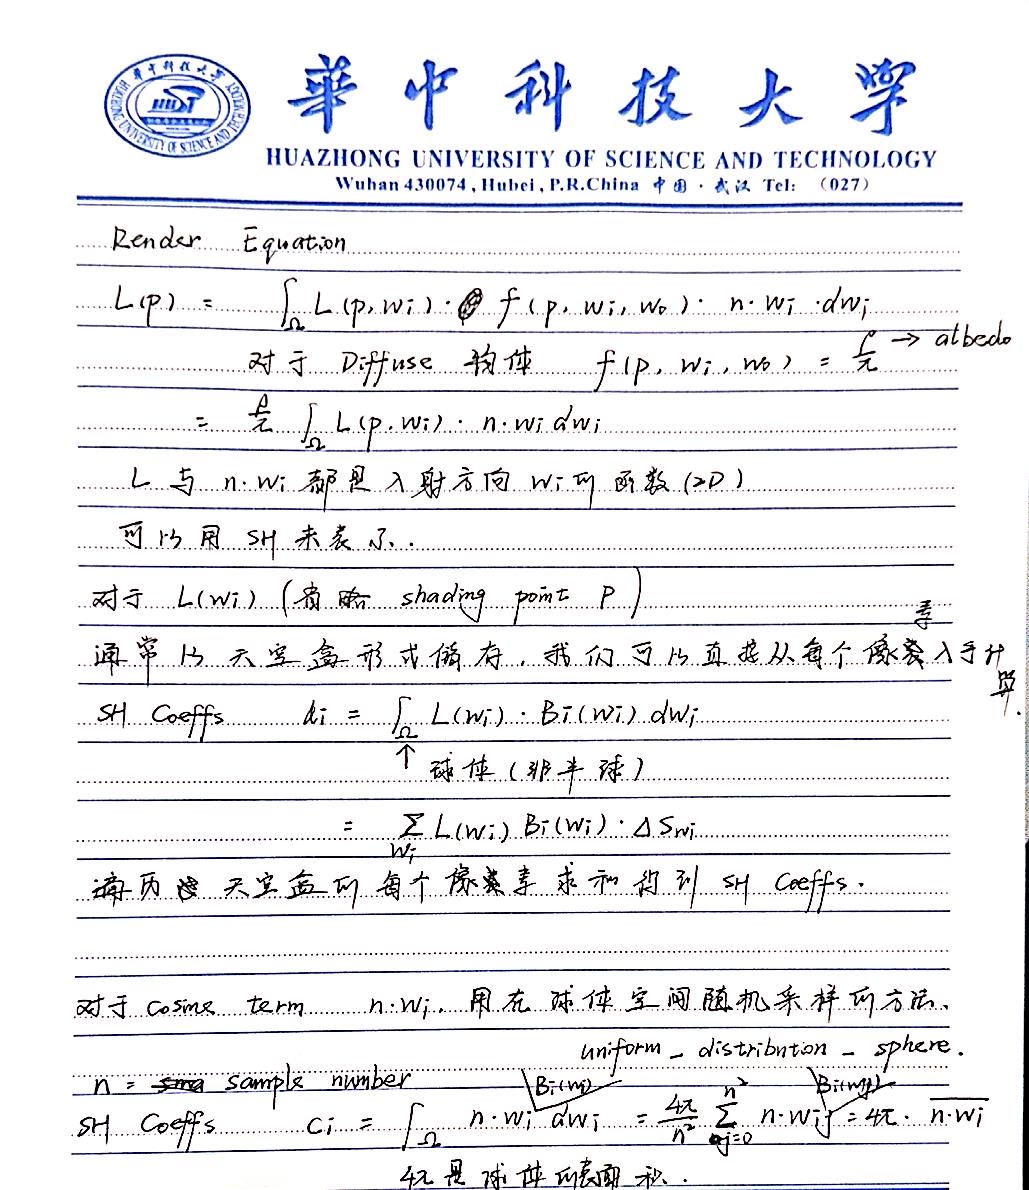 華中科技大学
HUAZHONG UNIVERSITY OF SCIENCE AND TECHNOLOGY
Wuhan 430074, Hubei, P.R.China 中国·武汉 Tel: (027)
Render Equation
L(p) = ∫_Ω L(p, wi) · f(p, wi, wo) · n·wi · dwi
对于 Diffuse 物体 f(p, wi, wo) = ρ/π → albedo
= ρ/π ∫_Ω L(p, wi) · n·wi dwi
L 与 n·wi 都是入射方向 wi 的函数 (2D)
可以用 SH 来表示.
对于 L(wi) (省略 shading point P)
通常以天空盒形式储存, 我们可以直接从每个像素入手计算.
SH Coeffs di = ∫_Ω L(wi) · Bi(wi) dwi
↑ 球体 (非半球)
= Σ_wi L(wi) Bi(wi) · ΔSwi
遍历天空盒的每个像素求和得到 SH Coeffs.
对于 cosine term n·wi, 用在球体空间随机采样的方法.
uniform_distribution_sphere.
n = sample number
SH Coeffs ci = ∫_Ω n·wi Bi(wi) dwi = 4π/n² Σ_{j=0}^{n²} n·wij Bi(wij) = 4π · n·wi
4π是球体的表面积.